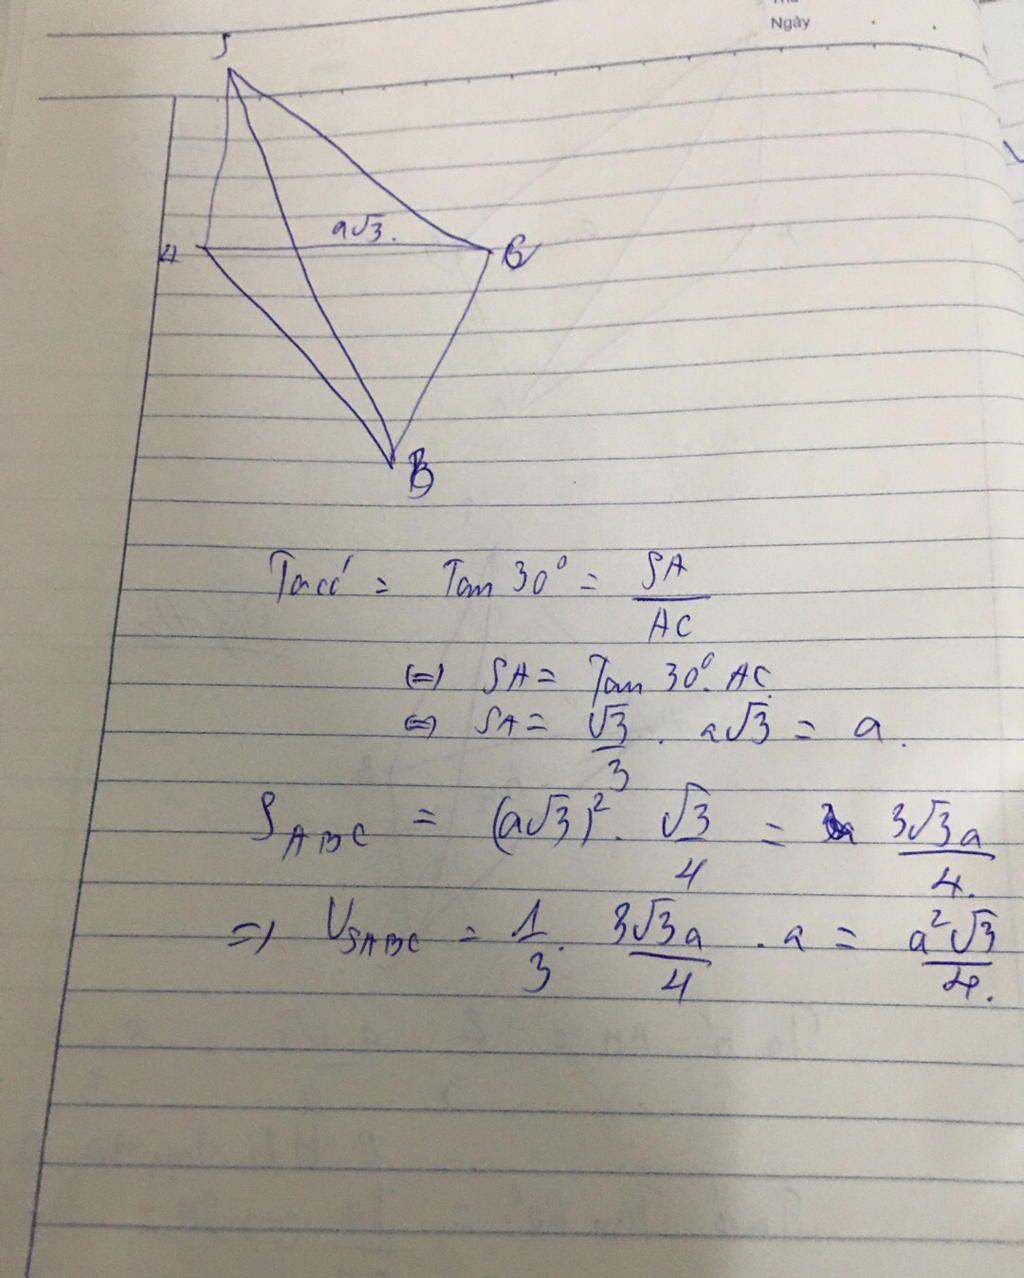 Ngày
S
a√3.
A
C
B
Ta có = Tan 30° = SA/AC
⇔ SA = Tan 30°. AC.
⇔ SA = √3/3 . a√3 = a.
S_ABC = (a√3)². √3/4 = 3√3a/4.
⇒ V_SABC = 1/3. 3√3a/4 . a = a²√3/4.